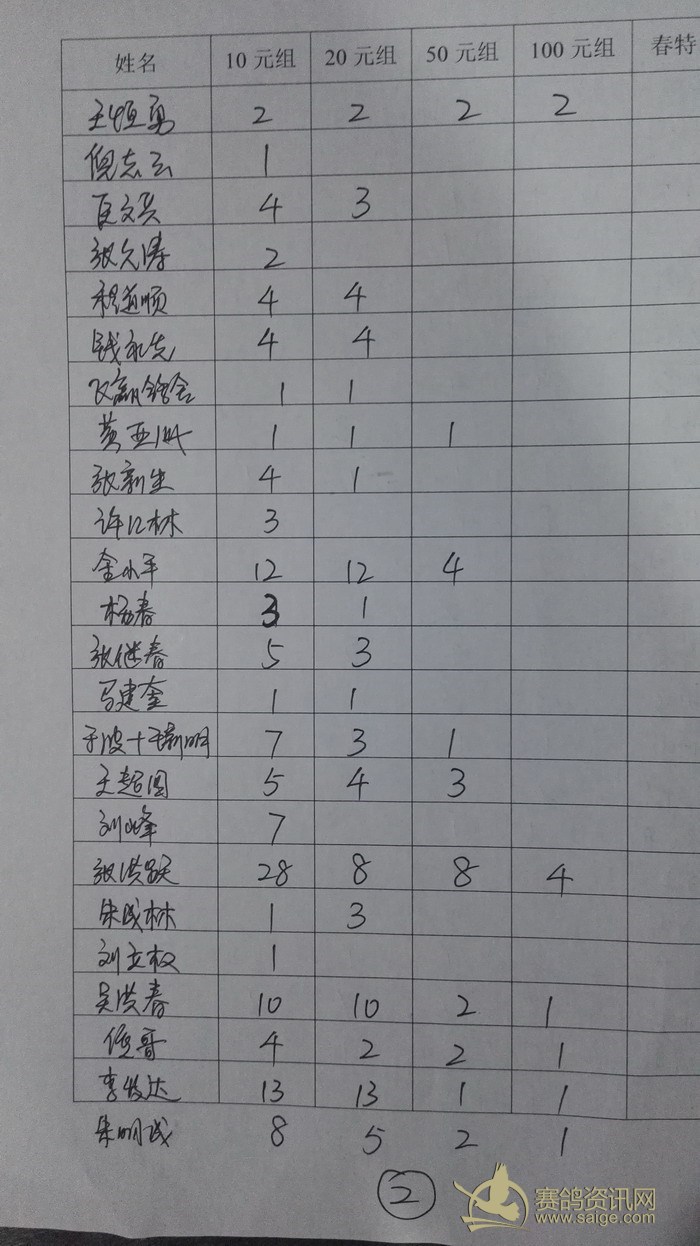 姓名 10 元组 20 元组 50 元组 100 元组 春特
王恒勇 2 2 2 2
倪志云 1
4 3
张久涛 2
程道顺 4 4
钱永先 4 4
飞赢鸽舍 1 1
黄亚洲 1 1 1
张新生 4 1
许江林 3
金小平 12 12 4
杨春 3 1
张继春 5 3
马建奎 1 1
于波+王新明 7 3 1
王超国 5 4 3
刘峰 7
张洪跃 28 8 8 4
朱成林 1 3
刘立权 1
吴洪春 10 10 2 1
4 2 2 1
李发达 13 13 1 1
朱明成 8 5 2 1
2
赛鸽资讯网
www.saige.com